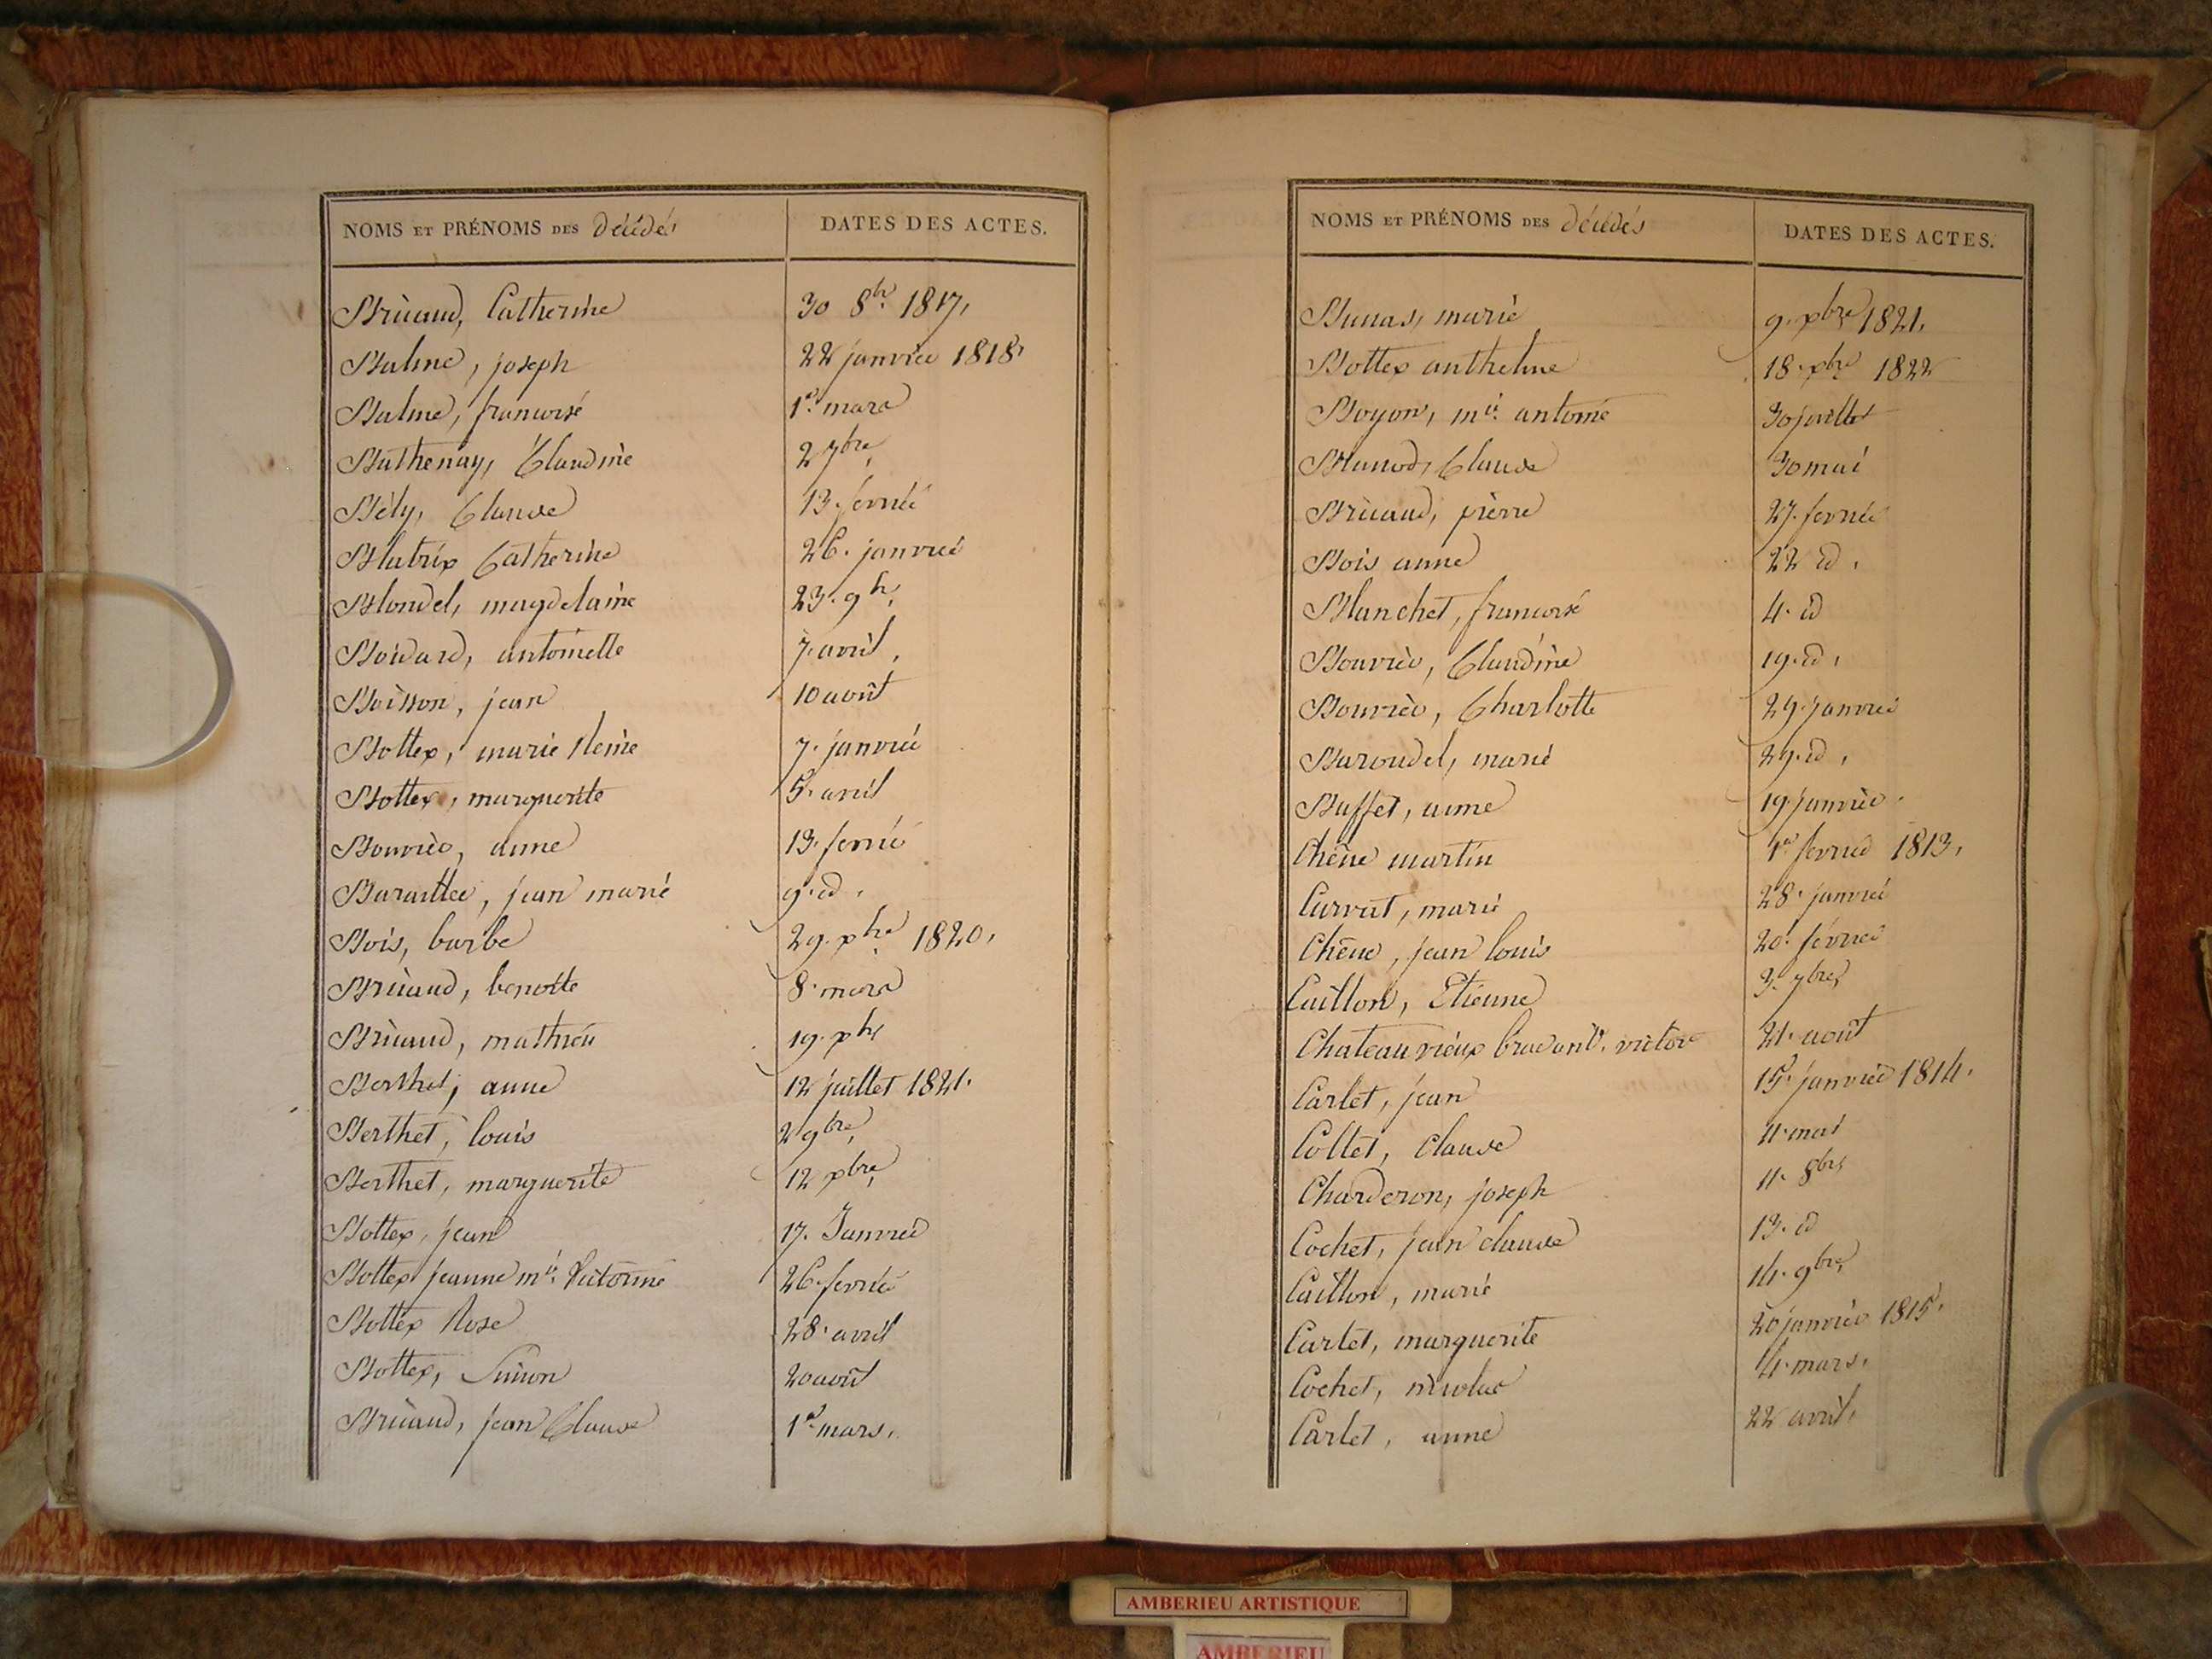 NOMS ET PRÉNOMS DES décédés
DATES DES ACTES.
Bricaud, Catherine 30 8bre 1817,
Balme, joseph 22 janvier 1818,
Balme, francoise 1er mars
Bathenay, Claudine 2 7bre,
Bély, Claude 13. fevrier
Blatrix Catherine 26. janvier
Blondel, magdelaine 23. 9bre,
Boidard, antoinette 7. avril,
Boisson, jean 10 août
Bottex, marie Reine 7. janvier
Bottex, marguerite 5. avril
Bouvier, anne 13. fevrier
Baraillee, jean marie 9. id.
Bois, barbe 29. xbre 1820,
Bricaud, benoite 8. mars
Bricaud, mathieu 19. xbre
Berthet, anne 12 juillet 1821.
Berthet, louis 2 9bre,
Berthet, marguerite 12 xbre,
Bottex, jean 17. Janvier
Bottex jeanne mie. Victorine 26. fevrier
Bottex Rose 28. avril
Bottex, Simon 20 août
Bricaud, jean Claude 1er mars,
NOMS ET PRÉNOMS DES décédés
DATES DES ACTES.
marie 9. xbre 1821,
Bottex anthelme 18. xbre 1822
Boyon, mie. antoine 30 juillet
Claude 30 mai
Bricaud, pierre 27. fevrier
Bois anne 22 id.
Blanchet, francoise 4. id
Bouvier, Claudine 19. id,
Bouvier, Charlotte 29. janvier
Baroudel, marie 29. id,
Buffet, aime 19. janvier.
Chêne martin 1er fevrier 1813,
Curvat, marie 28. janvier
Chêne, jean louis 20. fevrier
Caillon, Etienne 3. 7bre,
Chateauvieux victor 21. août
Carlet, jean 15. janvier 1814.
Collet, Claude 4. mai
Charderon, joseph 11. 8bre
Cochet, jean claude 13. id
Caillon, marie 14. 9bre,
Carlet, marguerite 20 janvier 1815,
Cochet, nicolas 4. mars,
Carlet, anne 22 avril,
AMBERIEU ARTISTIQUE
AMBERIEU